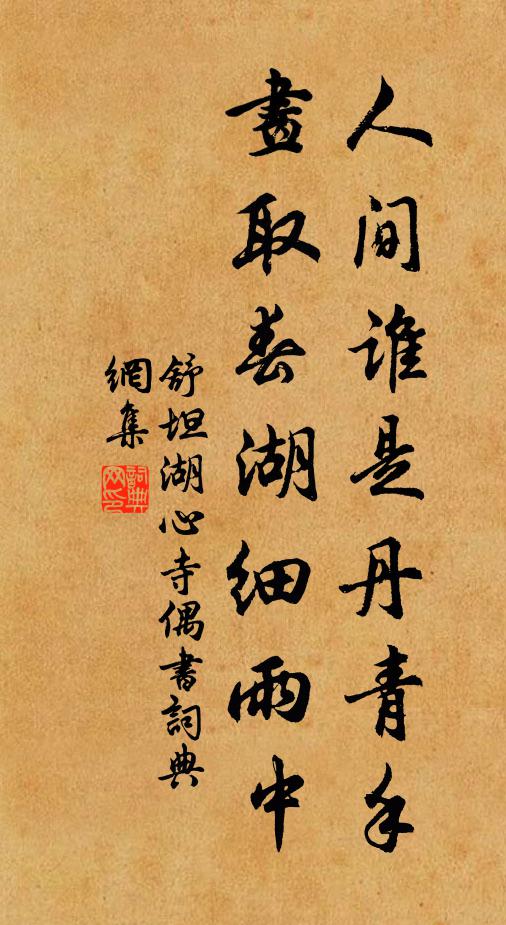 人间谁是丹青手
畫取春湖细雨中
舒坦湖心寺偶書詞典
網集
詞典网印